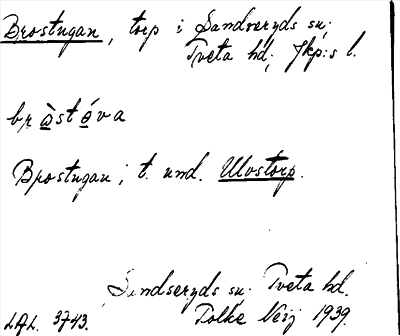 Brostugan, torp i Sandseryds sn;
Tveta hd; Jkp:s l.
bròstéva
Brostugan; t. und. Ulvstorp.
Sandseryds sn. Tveta hd.
LAL. 3743. Tolke 1939.